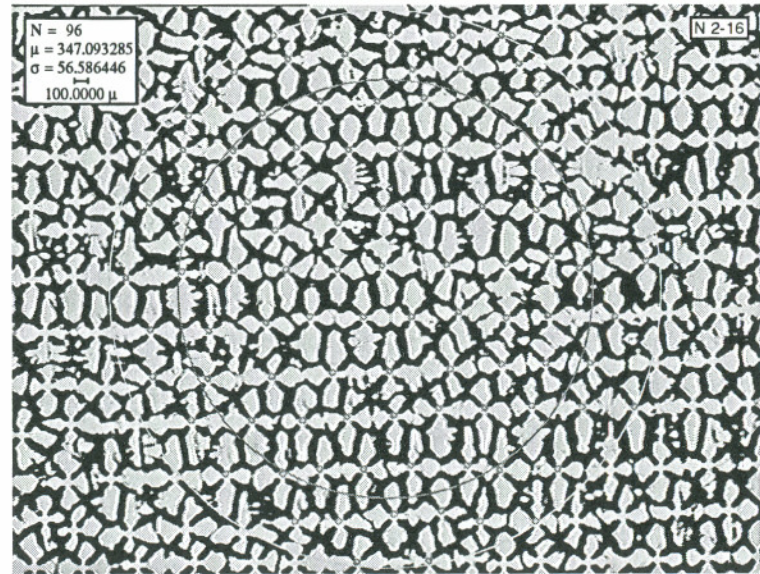 N = 96
μ = 347.093285
σ = 56.586446
100.0000 μ
N 2-16